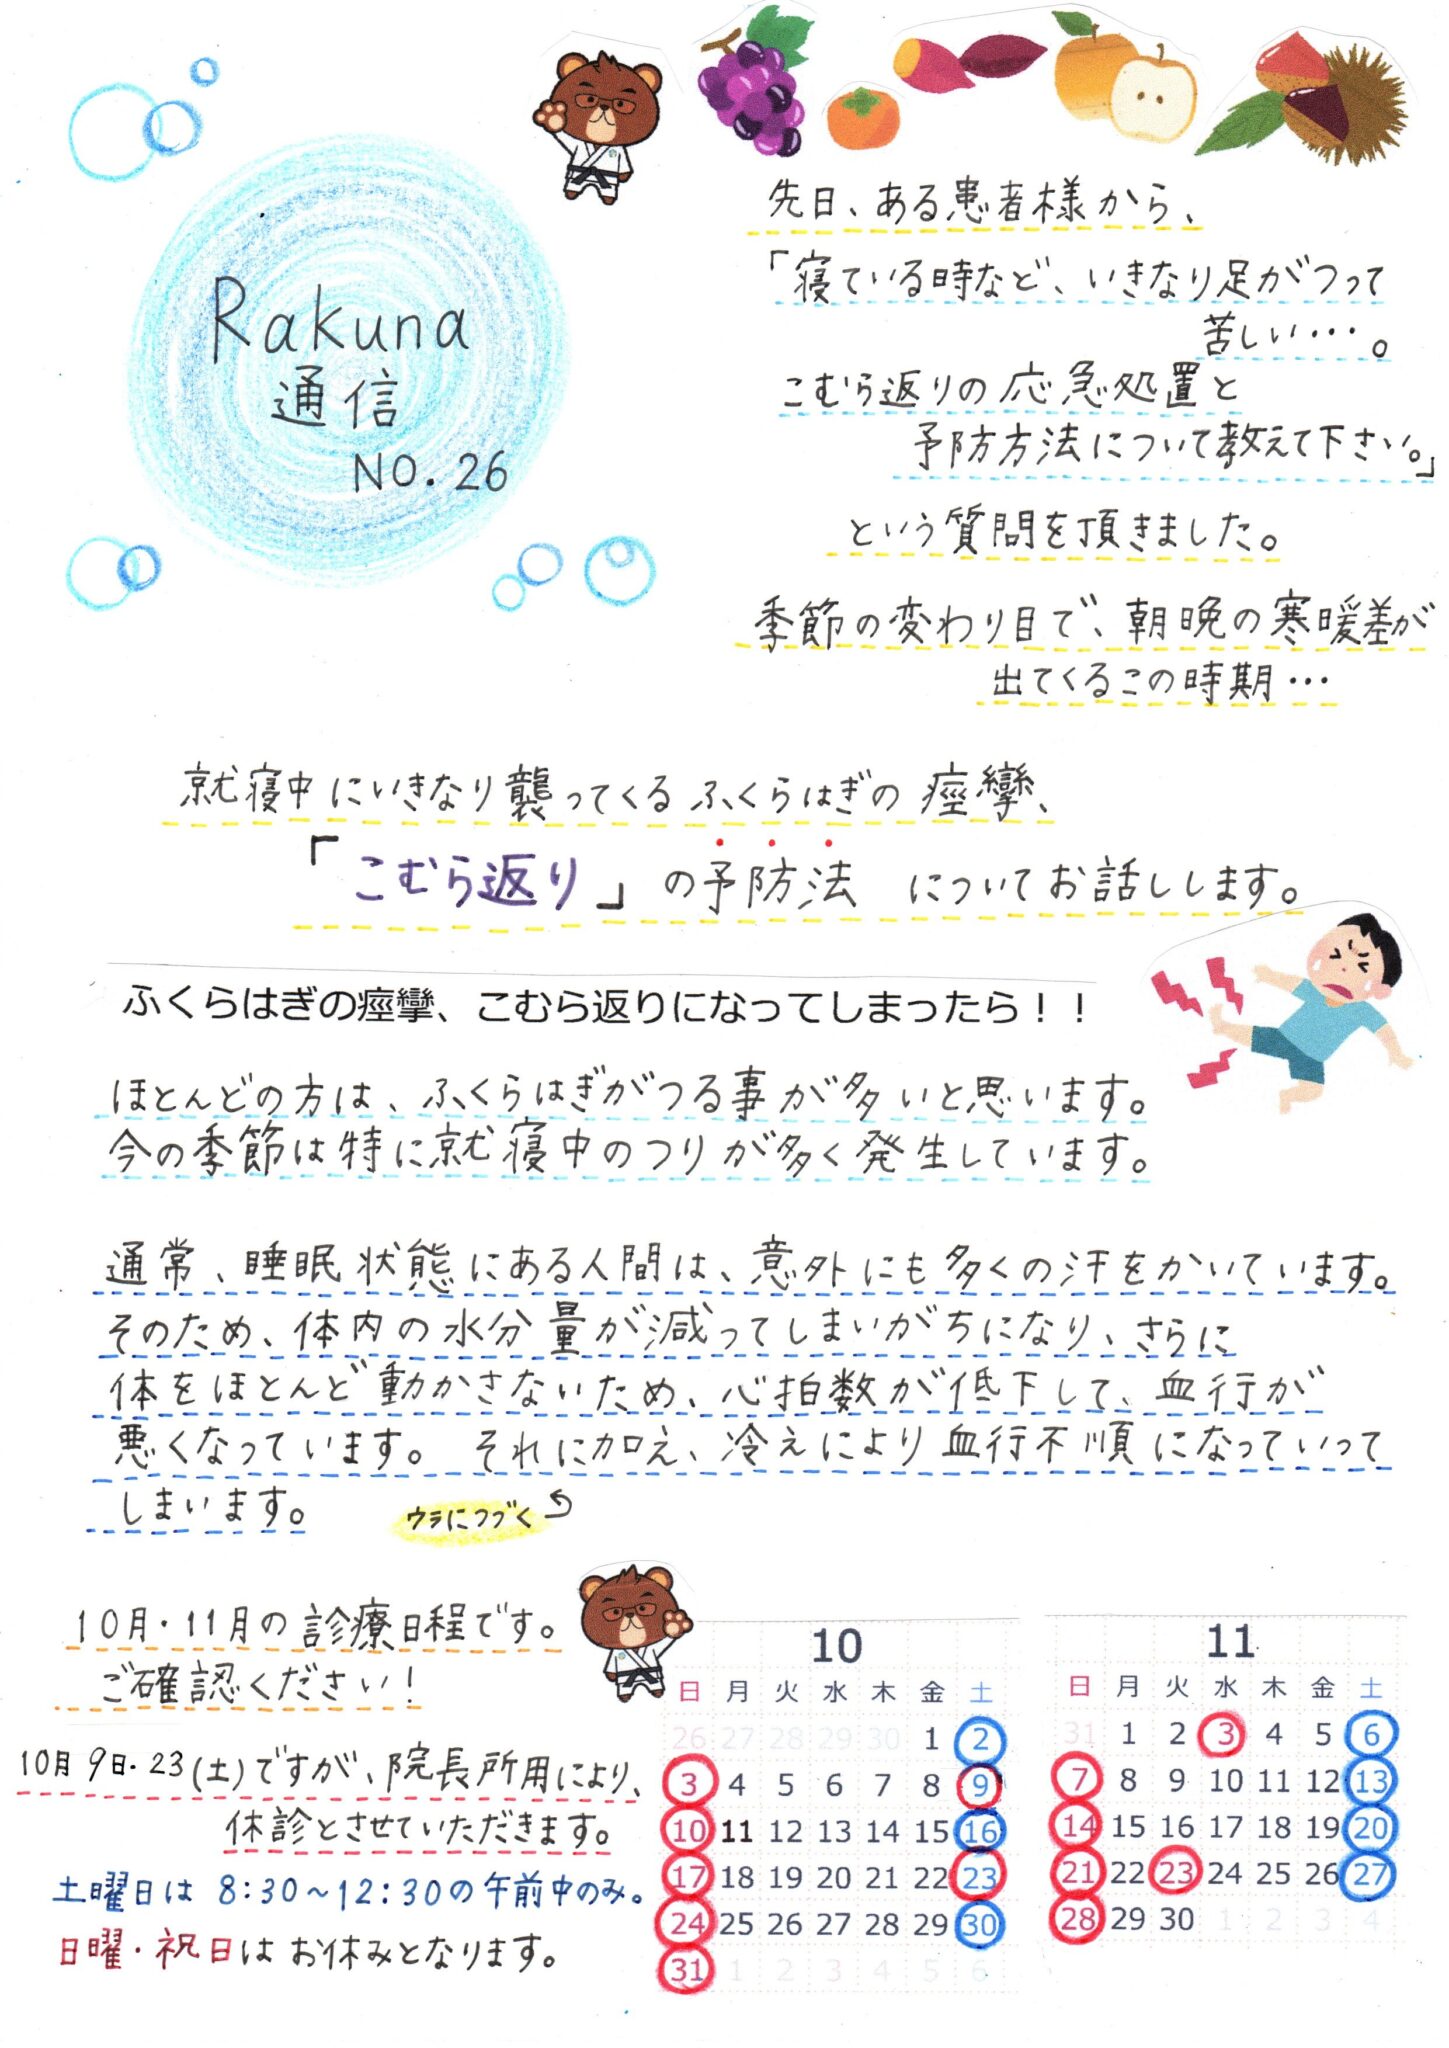 Rakuna
通信
NO.26
先日、ある患者様から、
「寝ている時など、いきなり足がつって
苦しい…。
こむら返りの応急処置と
予防方法について教えて下さい。」
という質問を頂きました。
季節の変わり目で、朝晩の寒暖差が
出てくるこの時期…
就寝中にいきなり襲ってくるふくらはぎの痙攣、
「こむら返り」の予防法 についてお話しします。
ふくらはぎの痙攣、こむら返りになってしまったら！！
ほとんどの方は、ふくらはぎがつる事が多いと思います。
今の季節は特に就寝中のつりが多く発生しています。
通常、睡眠状態にある人間は、意外にも多くの汗をかいています。
そのため、体内の水分量が減ってしまいがちになり、さらに
体をほとんど動かさないため、心拍数が低下して、血行が
悪くなっています。 それに加え、冷えにより血行不順になっていって
しまいます。 ウラにつづく
10月・11月の診療日程です。
ご確認ください！
10月9日・23(土)ですが、院長所用により、
休診とさせていただきます。
土曜日は 8:30〜12:30の午前中のみ。
日曜・祝日はお休みとなります。
10
日 月 火 水 木 金 土
26 27 28 29 30 1 2
3 4 5 6 7 8 9
10 11 12 13 14 15 16
17 18 19 20 21 22 23
24 25 26 27 28 29 30
31 1 2 3 4 5 6
11
日 月 火 水 木 金 土
31 1 2 3 4 5 6
7 8 9 10 11 12 13
14 15 16 17 18 19 20
21 22 23 24 25 26 27
28 29 30 1 2 3 4